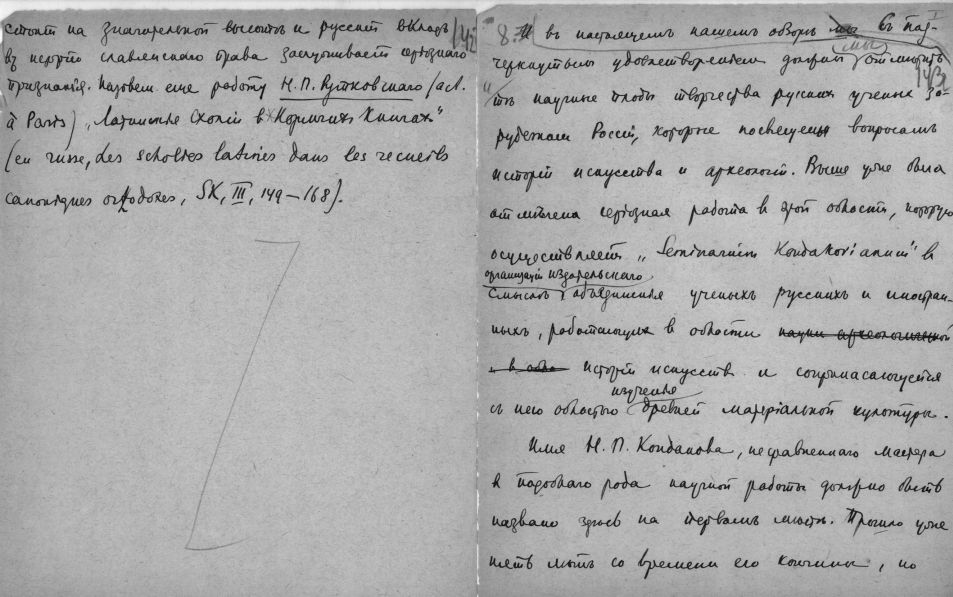 стоит на значительной высотѣ и русскій вкладъ
въ исторіи славянскаго права заслуживаетъ серіозного
признанія. Назовем еще работу Н.П. Рутковскаго (act.
à Paris) „Латинскія Схоліи в Кормчихъ Книгахъ"
(en russe, des scholies latines dans les recueils
canoniques orthodoxes, SK, III, 149–168).
142
8. въ настоящемъ нашемъ обзорѣ мы съ под-
черкнутымъ удовлетвореніем должны мы отмѣтить
143
научные плоды творчества русских ученых за-
рубежом Россіи, которые посвящены вопросамъ
исторіи искусства и археологіи. Выше уже была
отмѣчена серіозная работа в этой области, которую
осуществляетъ „Seminarium Kondakovianum" в
организаціи издательскаго
смыслѣ объединенія ученыхъ русскихъ и иностран-
ныхъ, работающих в области науки археологической
и в исторіи искусств и соприкасающуюся
изученія
с нею областью древней матеріальной культуры.
Имя Н. П. Кондакова, несравненнаго мастера
в подобнаго рода научной работы должно быть
названо здесь на первомъ мѣстѣ. Прошло уже
пять лѣтъ со времени его кончины, но